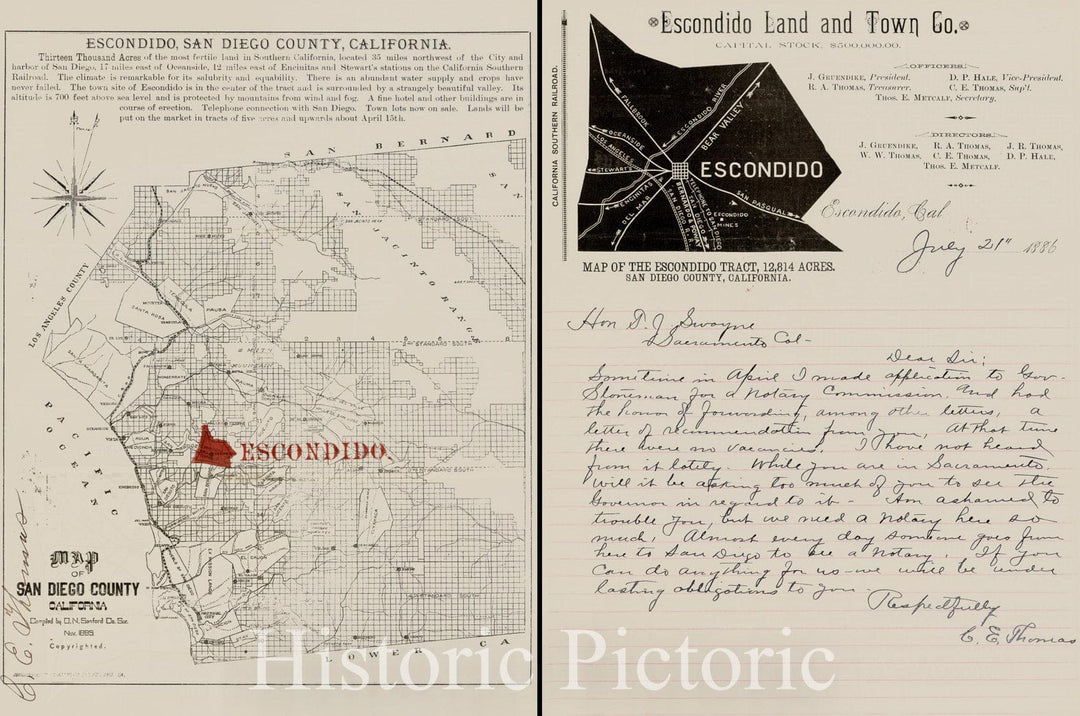 ESCONDIDO, SAN DIEGO COUNTY, CALIFORNIA.
Thirteen Thousand Acres of the most fertile land in Southern California, located 35 miles northwest of the City and
harbor of San Diego, 17 miles east of Oceanside, 12 miles east of Encinitas and Stewart's stations on the California Southern
Railroad. The climate is remarkable for its salubrity and equability. There is an abundant water supply and crops have
never failed. The town site of Escondido is in the center of the tract and is surrounded by a strangely beautiful valley. Its
altitude is 700 feet above sea level and is protected by mountains from wind and fog. A fine hotel and other buildings are in
course of erection. Telephone connection with San Diego. Town lots now on sale. Lands will be
put on the market in tracts of five acres and upwards about April 15th.
SAN BERNARD
SAN JACINTO RANGE
LOS ANGELES COUNTY
SANTA ROSA
TEMECULA
PAUBA
STANDARD SOUTH
PACIFIC
OCEAN
ESCONDIDO
STANDARD SOUTH
EL CAJON
STANDARD SOUTH
LOWER CA
MAP
OF
SAN DIEGO COUNTY
CALIFORNIA
Compiled by O. N. Sanford Co. Sur.
Nov. 1885
Copyrighted.
C. E. Thomas
Escondido Land and Town Co.
CAPITAL STOCK, $500,000.00.
OFFICERS:
J. GRUENDIKE, President. D. P. HALE, Vice-President.
R. A. THOMAS, Treasurer. C. E. THOMAS, Sup't.
THOS. E. METCALF, Secretary.
DIRECTORS:
J. GRUENDIKE, R. A. THOMAS, J. R. THOMAS,
W. W. THOMAS, C. E. THOMAS, D. P. HALE,
THOS. E. METCALF.
CALIFORNIA SOUTHERN RAILROAD.
FALLBROOK
ESCONDIDO RIVER
BEAR VALLEY
OCEANSIDE
LOS ANGELES
STEWART'S
ENCINITAS
DEL MAR
ESCONDIDO
SAN PASQUAL
ESCONDIDO
MINES
BERNARDO & POWAY
SAN DIEGO R.R.
TELEPHONE TO SAN DIEGO
MAP OF THE ESCONDIDO TRACT, 12,814 ACRES.
SAN DIEGO COUNTY, CALIFORNIA.
Escondido, Cal
July 21" 1886
Hon T. J. Swayne
Sacramento Cal-
Dear Sir;
Sometime in April I made application to Gov-
Stoneman for a Notary Commission. And had
the honor of forwarding, among other letters, a
letter of recommendation from you, At that time
there were no vacancies. I have not heard
from it lately. While you are in Sacramento.
Will it be asking too much of you to see the
Governor in regard to it - Am ashamed to
trouble you, but we need a Notary here so
much, Almost every day someone goes from
here to San Diego to see a Notary. If you
can do anything for us - we will be under
lasting obligations to you -
Respectfully
C. E. Thomas
Historic Pictoric